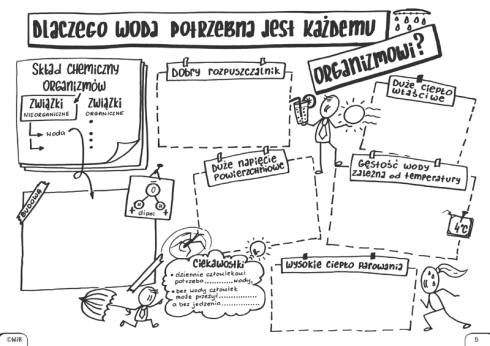 DLACZEGO WODA POTRZEBNA JEST KAŻDEMU
ORGANIZMOWI?
SKŁAD CHEMICZNY
ORGANIZMÓW
ZWIĄZKI
NIEORGANICZNE
ZWIĄZKI
ORGANICZNE
Woda
DOBRY ROZPUSZCZALNIK
DUŻE CIEPŁO
WŁAŚCIWE
DUŻE NAPIĘCIE
POWIERZCHNIOWE
GĘSTOŚĆ WODY
ZALEŻNA OD TEMPERATURY
4°C
BUDOWA
O
H H
+ dipol +
CIEKAWOSTKI
• dziennie człowiekowi
potrzeba..........wody,
• bez wody człowiek
może przeżyć.............
a bez jedzenia............
WYSOKIE CIEPŁO PAROWANIA
©WiR
5